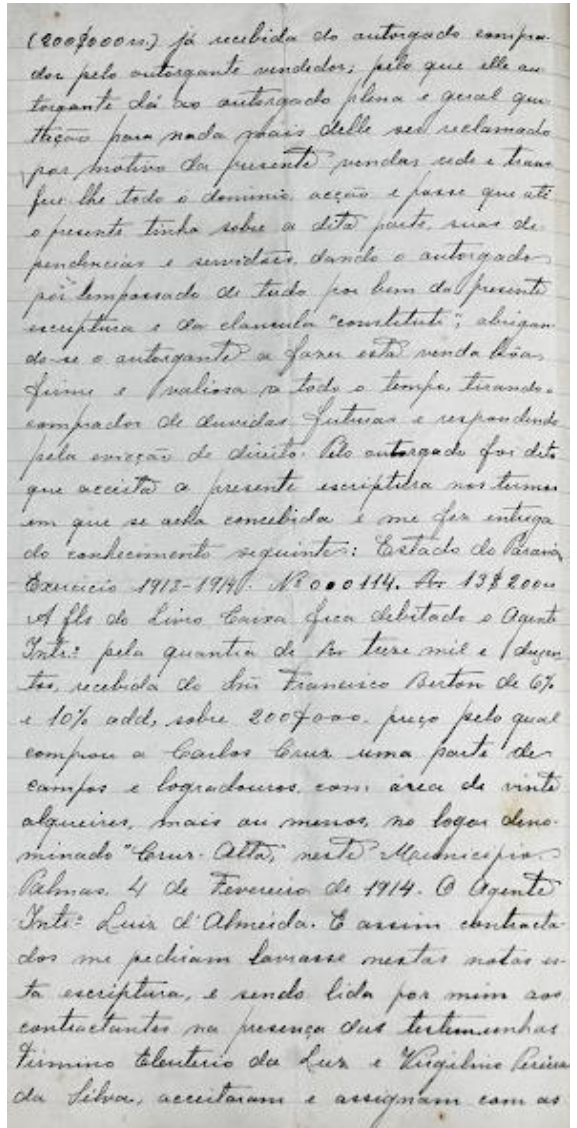 (200$000rs.) já recebida do outorgado compra-
dor pelo outorgante vendedor; pelo que elle ou-
torgante dá ao outorgado plena e geral qui-
tação para nada mais delle ser reclamado
por motivo da presente venda; cede e trans-
fere lhe todo o dominio, acção e posse que até
o presente tinha sobre a dita parte, suas de-
pendencias e servidões, dando o outorgado
por empossado de tudo por bem da presente
escriptura e da clausula "constituti"; obrigan-
do-se o outorgante a fazer esta venda bôa,
firme e valiosa a todo o tempo, tirando o
comprador de duvidas futuras e respondendo
pela evicção de direito. Pelo outorgado foi dito
que acceita a presente escriptura nos termos
em que se acha concebida e me fez entrega
do conhecimento seguinte: Estado do Paraná,
Exercicio 1913-1914. Nº 000114. Rs 13$200rs
A fls do Livro Caixa fica debitado o Agente
Intrº pela quantia de Rs treze mil e duzen-
tos, recebida do Snr Francisco Berton de 6%
e 10% add, sobre 200$000, preço pelo qual
comprou a Carlos Cruz uma parte de
campos e logradouros, com área de vinte
alqueires, mais ou menos, no logar deno-
minado "Cruz-Alta", neste Municipio.
Palmas, 4 de Fevereiro de 1914. O Agente
Intº Luiz d'Almeida. E assim contracta-
dos me pediram lavrasse nestas notas es-
ta escriptura, e sendo lida por mim aos
contractantes na presença das testemunhas
Firmino Eleuterio da Luz e Virgilino Pereira
da Silva, acceitaram e assignam com as